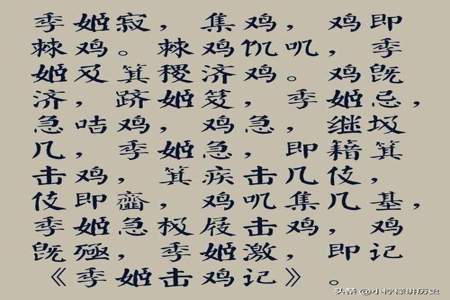 季姬寂，集鸡，鸡即
棘鸡。棘鸡饥叽，季
姬及箕稷济鸡。鸡既
济，跻姬笈，季姬忌，
急咭鸡，鸡急，继圾
几，季姬急，即籍箕
击鸡，箕疾击几伎，
伎即齑，鸡叽集几基，
季姬急极屐击鸡，鸡
既殛，季姬激，即记
《季姬击鸡记》。
头条@小柠檬讲历史